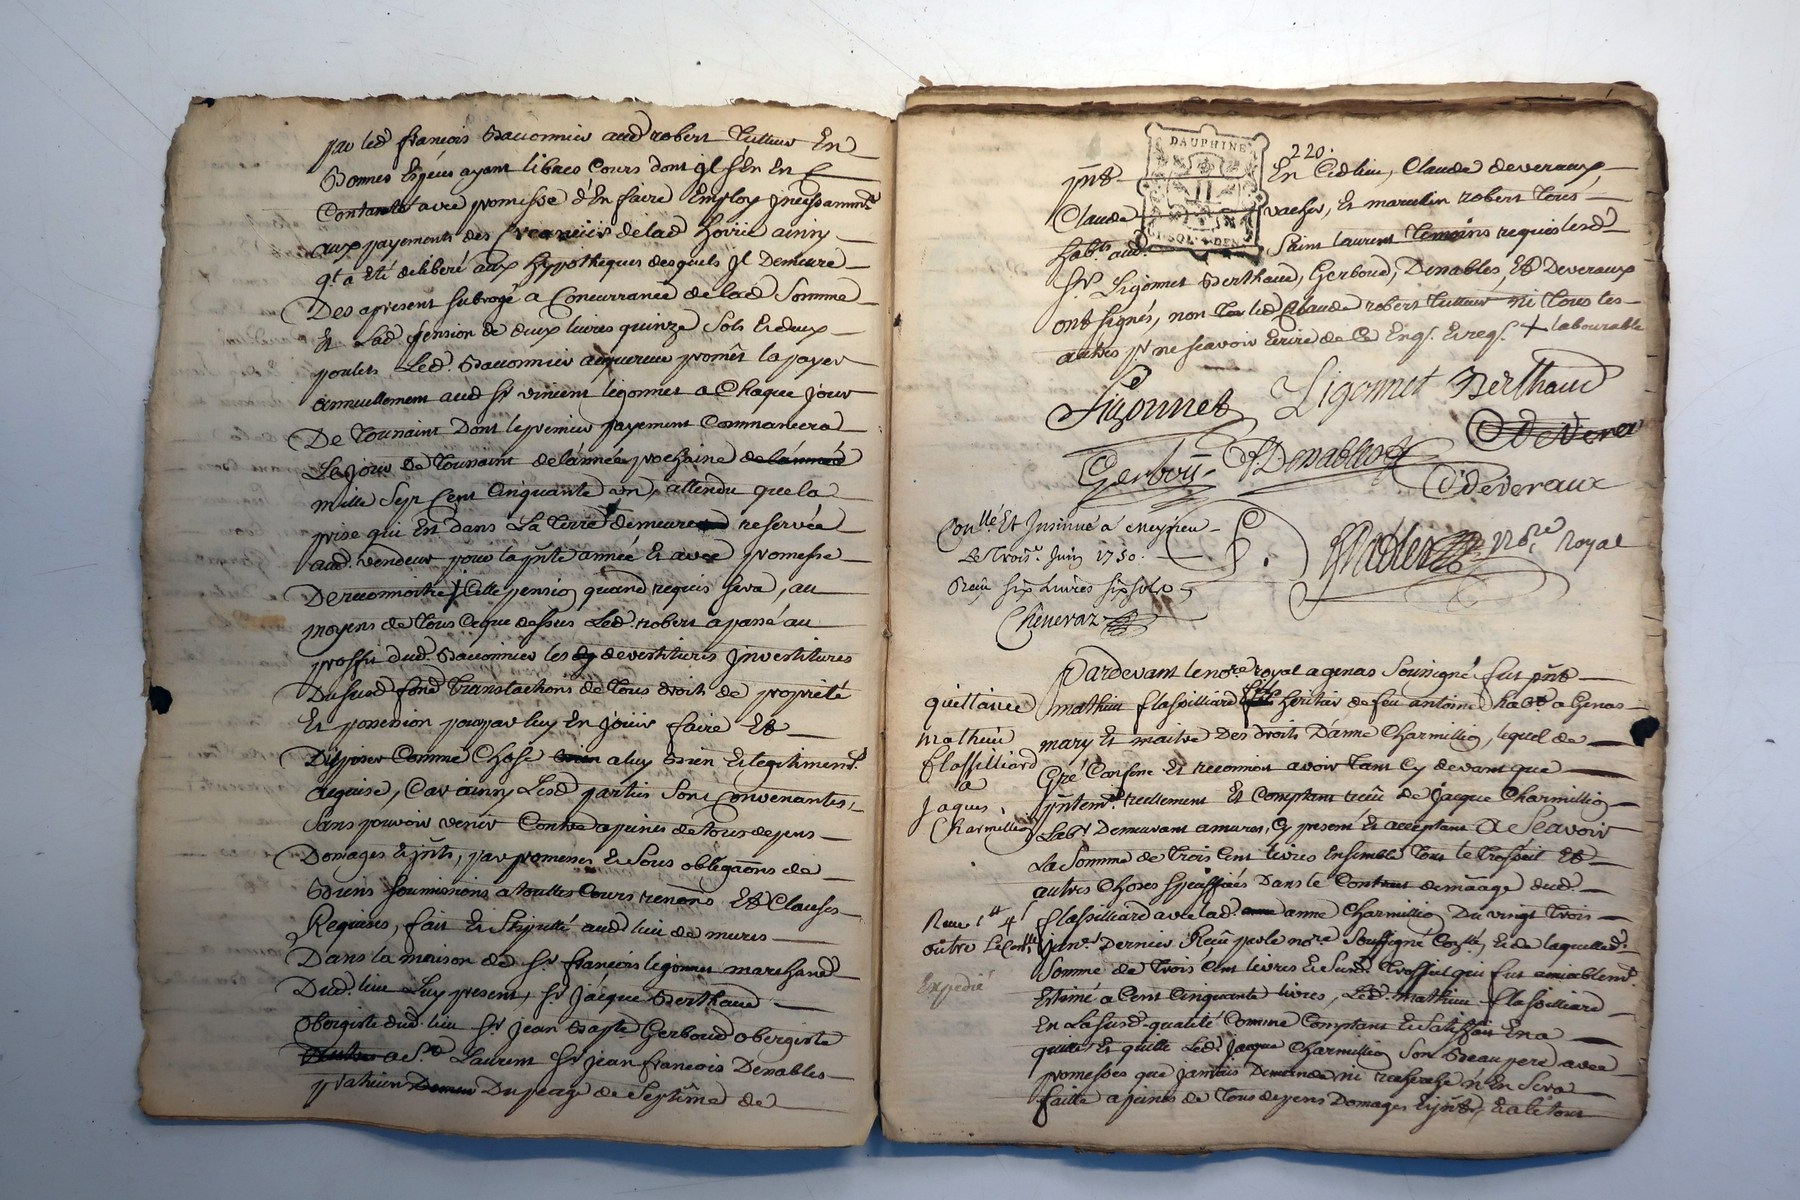 par led françois Bauonnier aud robert Tutteur En
Bonnes Espèces ayant libres Cours dont jl s'En En
Contante avec promesse d'En faire Employ jncessamm.t
aux payements des Creanciers de lad hoirie ainsy
q.t a Eté deliberé aux hypotheques desquels jl Demeure
Des apresent subrogé a Concurrance de lad Somme
Et Lad pension de deux livres quinze Sols Et deux
poulets Led. Bauonnier acquereur promêt la payer
annuellement aud S.r vincent ligonnet a Chaque jour
De Tousaint Dont le premier payement Commancera
Le jour de Tousaint de l'année prochaine de l'année
mille Sept Cent Cinquante un, attendu que la
prise qui Est dans La Terre demeure reservée
aud. vendeur pour la pñte année Et avec promesse
De reconnoitre Cette pension quand requis Sera, au
moyens de Tous Ce que dessus Led. robert a passé au
proffit dud. Bauonnier les devestitures jnvestitures
Du susd fond Translactions de Tous droits de proprieté
Et possession pour par luy En joüir faire Et
Disposer Comme Chose a luy Bien Et legitimem.t
acquise, Car ainsy Lesd parties Sont Convenantes,
Sans pouvoir venir Contre a peines de tous depens
Domages Et jñts, par promesses Et Sous obligãons de
Biens Soumissions a touttes Cours renons Et Clauses
Requises, fait Et Stipullé aud lieu de mures
Dans la maison de S.r françois ligonnet marchand
Dud. lieu Luy present, S.r Jacque Berthaud
Obergiste dud. lieu S.r jean Bapte Gerboud obergiste
a S.t Laurent S.r jean françois Denables
praticien Du peage de Septême de
DAUPHINE
220.
pñt En Ced lieu, Claude deveraux,
Claude vacher, Et marcelin robert Tous
habts aud. Saint laurent Temoins requis lesd
S.rs Ligonnet Berthaud, Gerboud, Denables, Et Deveraux
ont signés, non led Claude robert Tutteur ni Tous les
autres p.r ne sçavoir Ecrire de Ce Enq.s Et req.s + labourable
Ligonnet Ligonnet Berthaud
C deverau
Gerboû J Denables
C deveraux
Con.llé Et Jnsinué a meyrieu
Le Trois.e Juin 1750.
Reçu six Livres six sols
Cheneraz
nore royal
Pardevant le nore royal a genas Sousigné fut pñt
quittance
mathieu flassilliard heritier de feu antoine hab.t a Genas
mathieu
mary Et maitre Des droits D'anne Charmillion, lequel de
flassilliard
Gré Confesse Et reconnoit avoir Tant Cy devant que
a
pñtem.t reellement Et Comptant reçu de jacque Charmillion
Jaques
Lab.r Demeurant a mures, Cy present Et acceptant a Sçavoir
Charmillion
La Somme de Trois Cent livres Ensemble Tout le Trosseil Et
autres Choses Speciffiées Dans le Contract de mãage dud.
flassilliard avec lad. anne Charmillion Du vingt Trois
janv.r Dernier Reçu par le nore Soussigné Con.llé, Et de laquelle d.
outre Le Con.lle
Somme de Trois Cent livres Et Susd. Trossel qui fut amiablem.t
Expedié
Estimé a Cent Cinquante livres, Led. mathieu flassilliard
En La Susd. qualité Comme Comptant Et Satisfait En a
quitté Et quitte Led. jacque Charmillion Son Beau pere avec
promesses que jamais Demande ni recherche n'En Sera
faitte a peines de Tous depens Domages Et jñts, Et a le tout